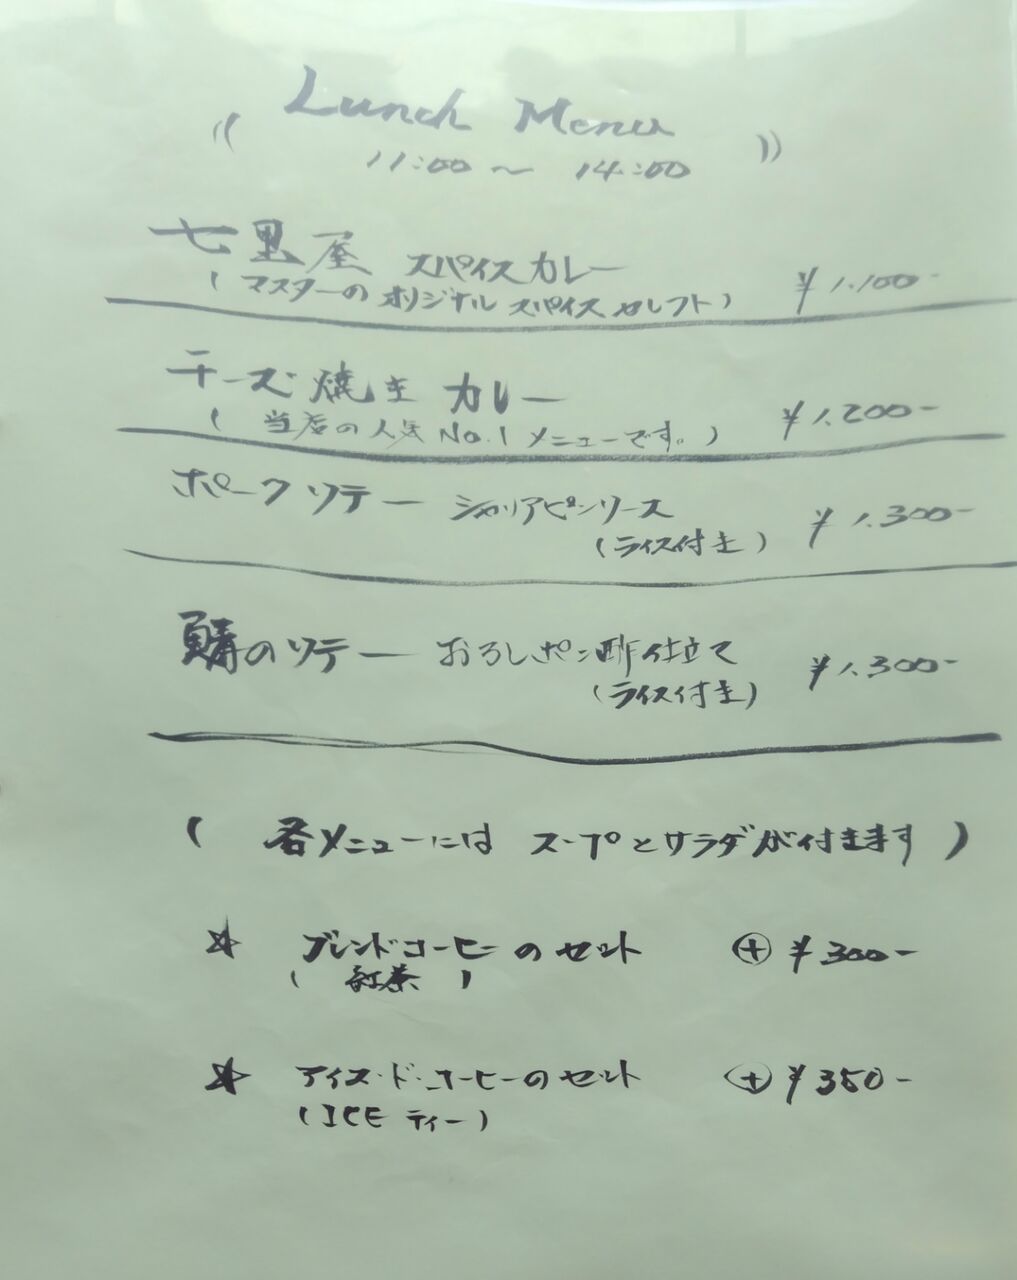 Lunch Menu
(( 11:00 〜 14:00 ))
七里屋 スパイスカレー ¥1.100-
(マスターのオリジナル スパイス セレクト)
チーズ焼きカレー ¥1,200-
(当店の人気No.1メニューです。)
ポークソテー シャリアピンソース ¥1.300-
(ライス付き)
鯖のソテー おろしポン酢仕立て ¥1.300-
(ライス付き)
(各メニューには スープとサラダが付きます)
☆ ブレンドコーヒーのセット ⊕ ¥300-
(紅茶)
☆ アイス・ド・コーヒーのセット ⊕ ¥350-
(ICE ティー)